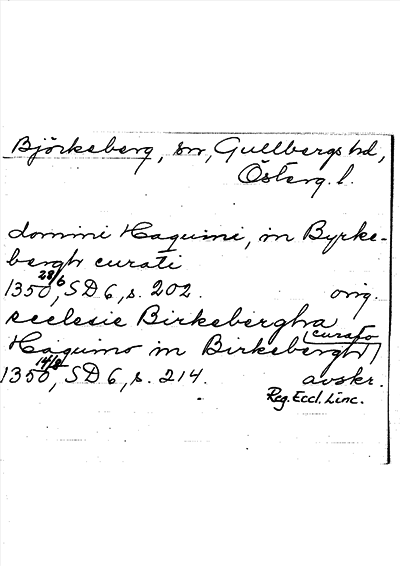 Björkeberg, sn, Gullbergs hd,
Österg. l.
domini Haquini, in Byrke-
bergh curati
1350 28/6, SD 6, s. 202. orig.
ecclesie Birkebergha
Haquino in Birkebergh (curato)
1350 14/8, SD 6, s. 214. avskr.
Reg. Eccl. Linc.